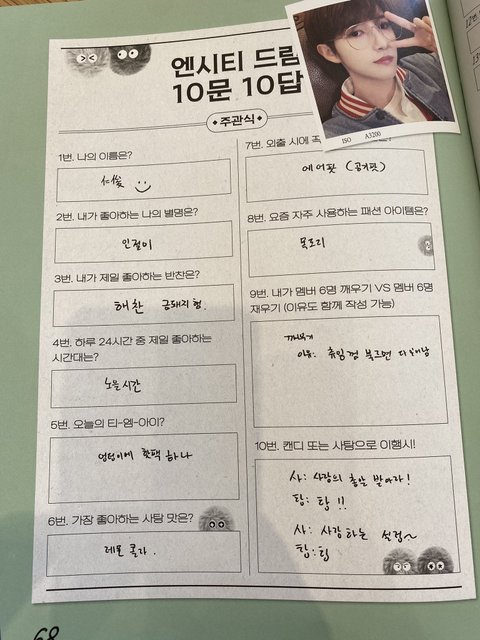 엔시티 드림
10문 10답
주관식
1번. 나의 이름은?
2번. 내가 좋아하는 나의 별명은?
인절미
3번. 내가 제일 좋아하는 반찬은?
해찬 금돼지형.
4번. 하루 24시간 중 제일 좋아하는
시간대는?
노을시간
5번. 오늘의 티-엠-아이?
엉덩이에 핫팩 하나
6번. 가장 좋아하는 사탕 맛은?
레몬 콜라.
7번. 외출 시에 꼭
에어팟 (공기팟)
8번. 요즘 자주 사용하는 패션 아이템은?
목토리
9번. 내가 멤버 6명 깨우기 VS 멤버 6명
재우기 (이유도 함께 작성 가능)
깨우기
이유: 휴잉 껌 부르면 다 일어남
10번. 캔디 또는 사탕으로 이행시!
사: 사랑의 총알 받아라!
탕: 탕!!
사: 사랑하는 설렁~
탕: 탕
ISO A3200
68